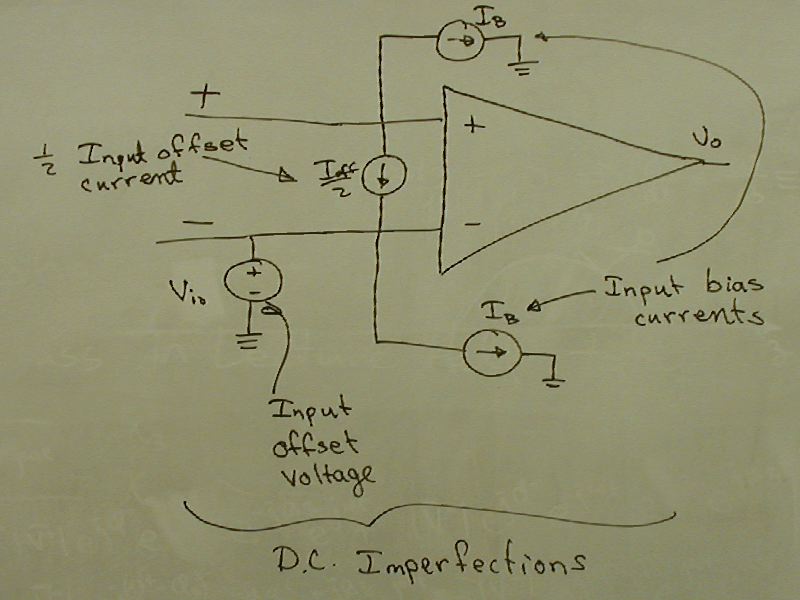 I_B
+
+
V_o
1/2 Input offset
current
I_off/2
−
−
+
−
V_io
I_B
Input bias
currents
Input
offset
voltage
D.C. Imperfections